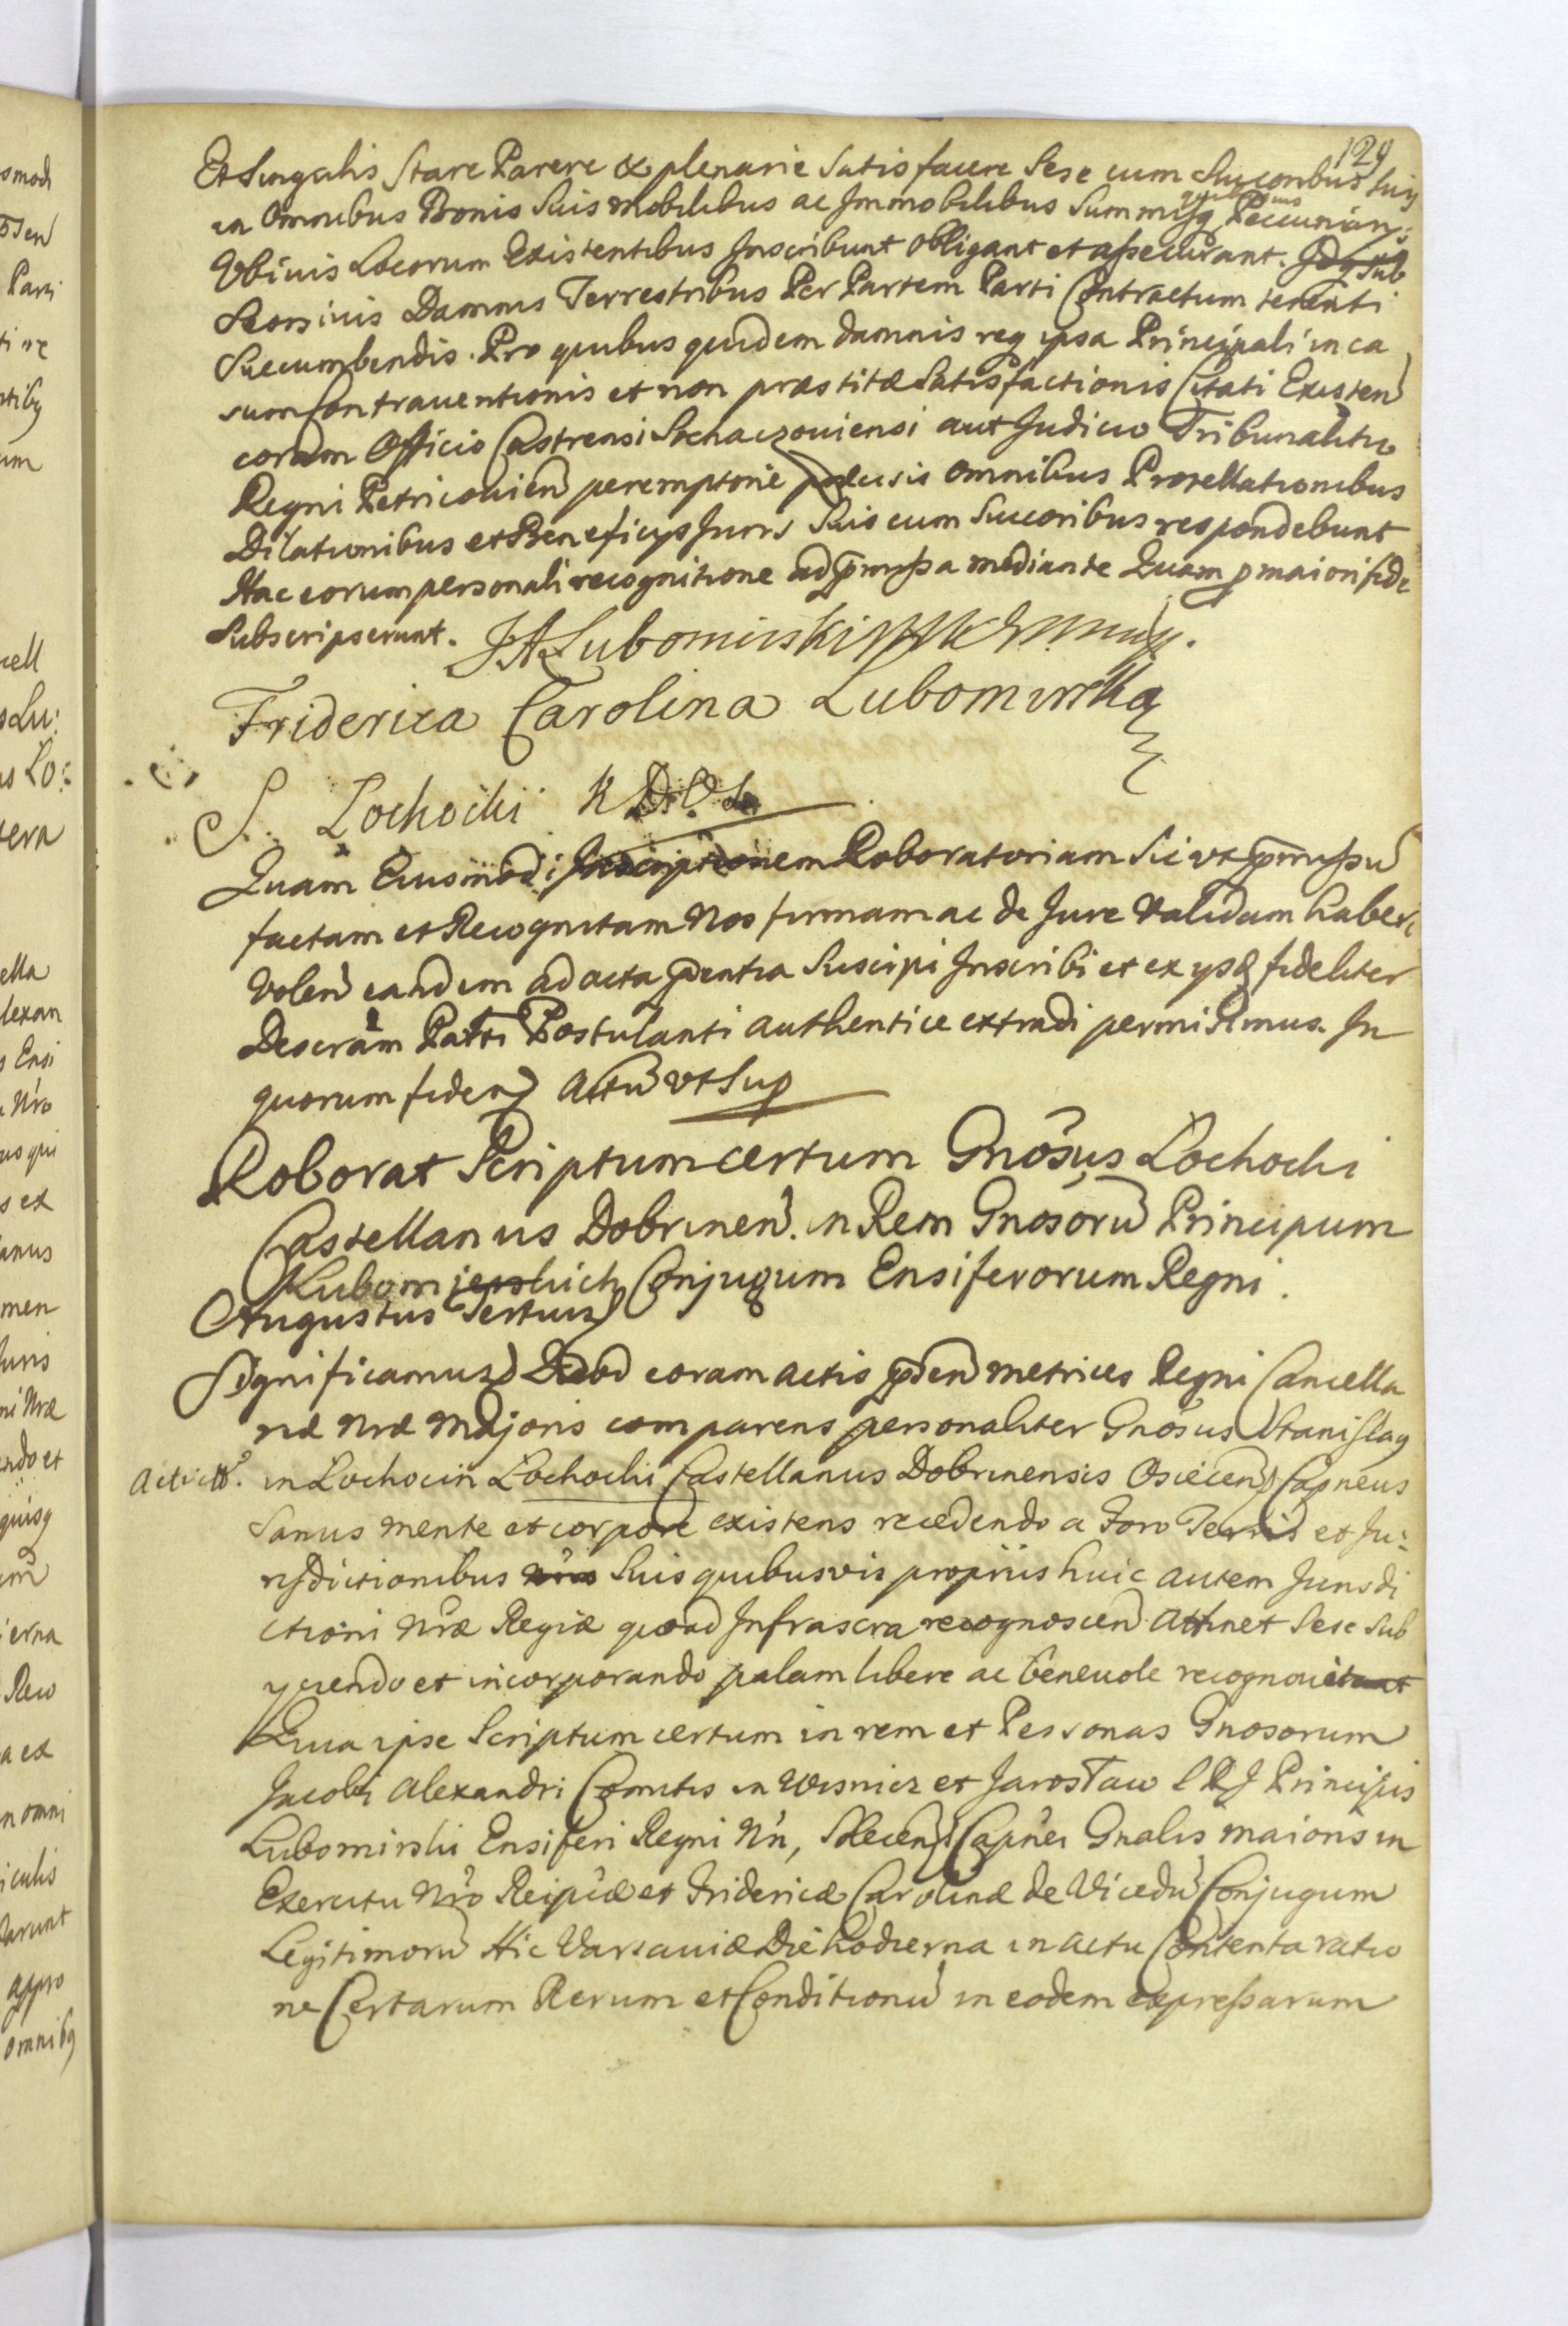 129
Et Singulis Stare Parere & plenarie Satisfacere Sese cum Succoribus Suis
in Omnibus Bonis Suis mobilibus ac Immobilibus Summisq Pecuniarys
Vbiuis Locorum Existentibus Inscribunt obligant et assecurant. Idq sub
Seorsiuis Damnis Terrestribus Per Partem Parti Contractum tenenti
Succumbendis. Pro quibus quidem damnis req ipsa Principali in ca
sum Contrauentionis et non præstitæ Satisfactionis Citati Existen
coram Officio Castrensi Sochaczouiensi aut Judicio Tribunalitio
Regni Petricouien peremptorie præcisis omnibus Provellationibus
Dilationibus et Beneficys Juris Suis cum Succoribus respondebunt
Hac eorum personali recognitione ad præmissa mediante Quam p maiori fide
Subscripserunt. JALubomirski
Friderica Carolina Lubomirska
S. Lochocki K D
Quam Eiusmodi Inscriptionem Roboratoriam Sic vt pmissu
factam et Recognitam Nos firmam ac de Jure Validam haberi
Volen eandem ad acta pentia Suscipi Inscribi et ex ysd fideliter
Descram Parti Postulanti authentice extradi permisimus. In
quorum fidem Actu vt Sup
Roborat Scriptum certum Gnosus Lochocki
Castellanus Dobrinen. in Rem Gnosoru Principum
Lubomirskich Conjugum Ensiferorum Regni.
Augustus Tertius
Significamus Quod coram actis pden metrices Regni Cancella
riæ Nræ Majoris comparens personaliter Gnosus Stanislaq
in Lochocin Lochocki Castellanus Dobrinensis Osiecen Capneus
Sanus mente et corpore existens recedendo a Foro Terris et Ju-
risdictionibus nris Suis quibusvis proprüs huic autem Jurisdi
ctioni Nræ Regiæ quoad Infrascra recognoscen Attinet Sese Sub
yciendo et incorporando palam libere ac beneuole recognouit
Quia ipse Scriptum certum in rem et Personas Gnosorum
Jacobi Alexandri Comitis in Wisnicz et Jarosław S R J Principis
Lubomirski Ensiferi Regni Nri, Capnei Gnalis maioris in
Exercitu Nro Reipcæ et Fridericæ Carolinæ de Vicedu Conjugum
Legitimoru Hic Varsauiæ Die hodierna in actu Contenta ratio
ne Certarum Rerum et Conditionu in eodem expressarum